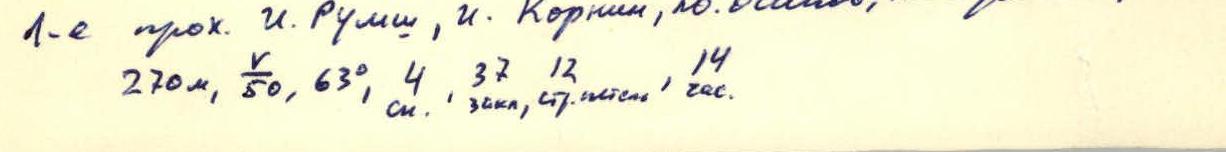 1-е прох. И. Румш, И. Корнин, Ю.
270м, V/50, 63°, 4 сн., 37 закл, 12 стр. петель, 14 час.